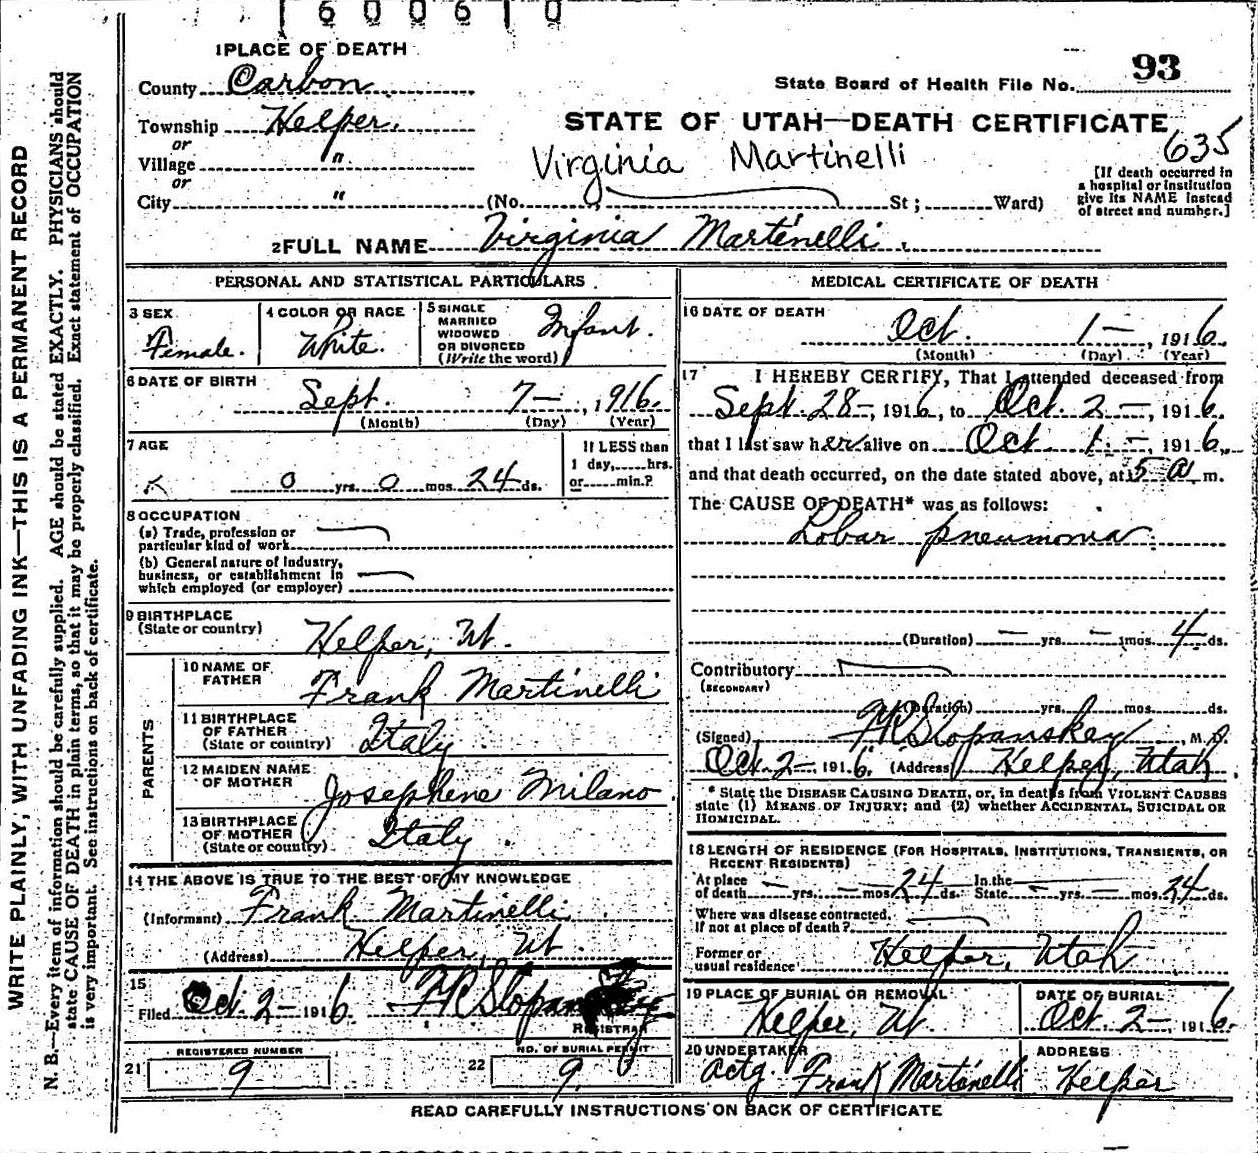 1 6 0 0 6 1 0
1 PLACE OF DEATH
County Carbon
Township Helper.
or
Village "
or
City "
State Board of Health File No. 93
STATE OF UTAH—DEATH CERTIFICATE
635
Virginia Martinelli
[If death occurred in
a hospital or institution
give its NAME instead
of street and number.]
(No. St ; Ward)
2 FULL NAME Virginia Martinelli.
PERSONAL AND STATISTICAL PARTICULARS
3 SEX
Female.
4 COLOR OR RACE
White.
5 SINGLE
MARRIED
WIDOWED
OR DIVORCED
(Write the word)
Infant.
6 DATE OF BIRTH
Sept. 7—, 1916.
(Month) (Day) (Year)
7 AGE
0 yrs. 0 mos. 24 ds.
If LESS than
1 day, hrs.
or min.?
8 OCCUPATION
(a) Trade, profession or
particular kind of work
(b) General nature of Industry,
business, or establishment in
which employed (or employer)
9 BIRTHPLACE
(State or country)
Helper, Ut.
PARENTS
10 NAME OF
FATHER
Frank Martinelli
11 BIRTHPLACE
OF FATHER
(State or country)
Italy
12 MAIDEN NAME
OF MOTHER
Josephene Milano.
13 BIRTHPLACE
OF MOTHER
(State or country)
Italy.
14 THE ABOVE IS TRUE TO THE BEST OF MY KNOWLEDGE
(Informant) Frank Martinelli
(Address) Helper, Ut.
15
Filed Oct. 2— 1916 F R Slopanskey
REGISTRAR
REGISTERED NUMBER
21 9
NO. OF BURIAL PERMIT
22 9.
MEDICAL CERTIFICATE OF DEATH
16 DATE OF DEATH
Oct. 1—, 1916
(Month) (Day) (Year)
17 I HEREBY CERTIFY, That I attended deceased from
Sept. 28—, 1916, to Oct. 2—, 1916.
that I last saw her alive on Oct. 1.—, 1916,
and that death occurred, on the date stated above, at 5 a m.
The CAUSE OF DEATH* was as follows:
Lobar pneumonia.
(Duration) — yrs. — mos. 4 ds.
Contributory
(SECONDARY)
(Duration) yrs. mos. ds.
(Signed) F R Slopanskey, M. D.
Oct. 2— 1916. (Address) Helper, Utah.
* State the DISEASE CAUSING DEATH, or, in deaths from VIOLENT CAUSES
state (1) MEANS OF INJURY; and (2) whether ACCIDENTAL, SUICIDAL OR
HOMICIDAL.
18 LENGTH OF RESIDENCE (FOR HOSPITALS, INSTITUTIONS, TRANSIENTS, OR
RECENT RESIDENTS)
At place
of death — yrs. — mos. 24 ds. In the
State — yrs. — mos. 24 ds.
Where was disease contracted,
If not at place of death?
Former or
usual residence Helper, Utah
19 PLACE OF BURIAL OR REMOVAL
Helper, Ut.
DATE OF BURIAL
Oct. 2—, 1916.
20 UNDERTAKER
actg. Frank Martinelli
ADDRESS
Helper
READ CAREFULLY INSTRUCTIONS ON BACK OF CERTIFICATE
WRITE PLAINLY, WITH UNFADING INK—THIS IS A PERMANENT RECORD
N. B.—Every item of information should be carefully supplied. AGE should be stated EXACTLY. PHYSICIANS should
state CAUSE OF DEATH in plain terms, so that it may be properly classified. Exact statement of OCCUPATION
is very important. See instructions on back of certificate.